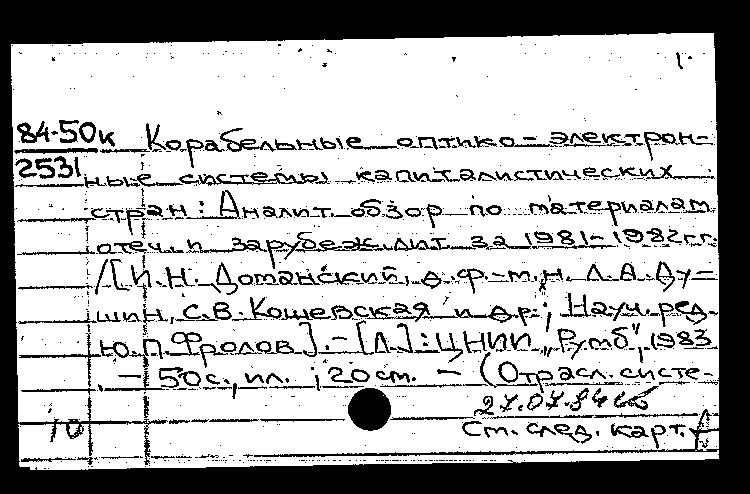 1.
84-50к Корабельные оптико-электрон-
2531 ные системы капиталистических
стран: Аналит. обзор по материалам
отеч. и зарубеж. лит. за 1981-1982гг.
/[И.Н. Доманский, д.ф.-м.н. Л.А. Ду-
шин, С.В. Кощевская и др.; Науч. ред.
Ю.П. Фролов]. - [Л.]: ЦНИИ „Румб", 1983
. - 50 с., ил. ; 20 см. - (Отрасл. систе-
27.07.84
10 См. след. карт.